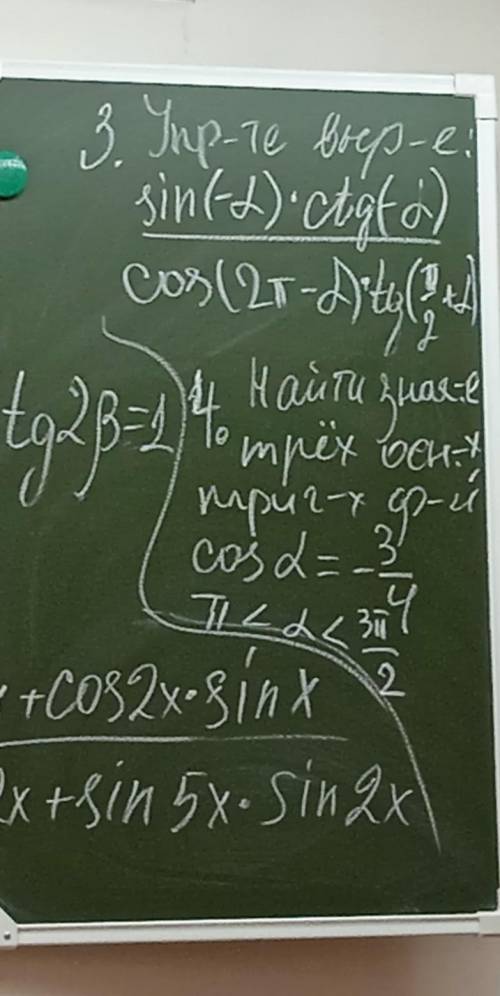 3. Упр-те выр-е:
sin(-α)·ctg(-α)
cos(2π-α)·tg(π/2+α)
tg2β=1
4. Найти знач-е
трёх осн-х
триг-х ф-й
cosα=-3/4
π<α<3π/2
+cos2x·sinx
2x+sin5x·sin2x